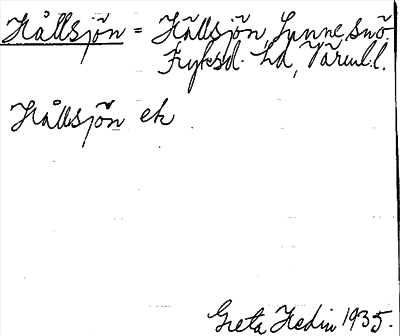 Hållsjön = Hällsjön, Sunne snö
Fryksd. hd, Värml.l.
Hållsjön ek
Greta Hedin 1935.